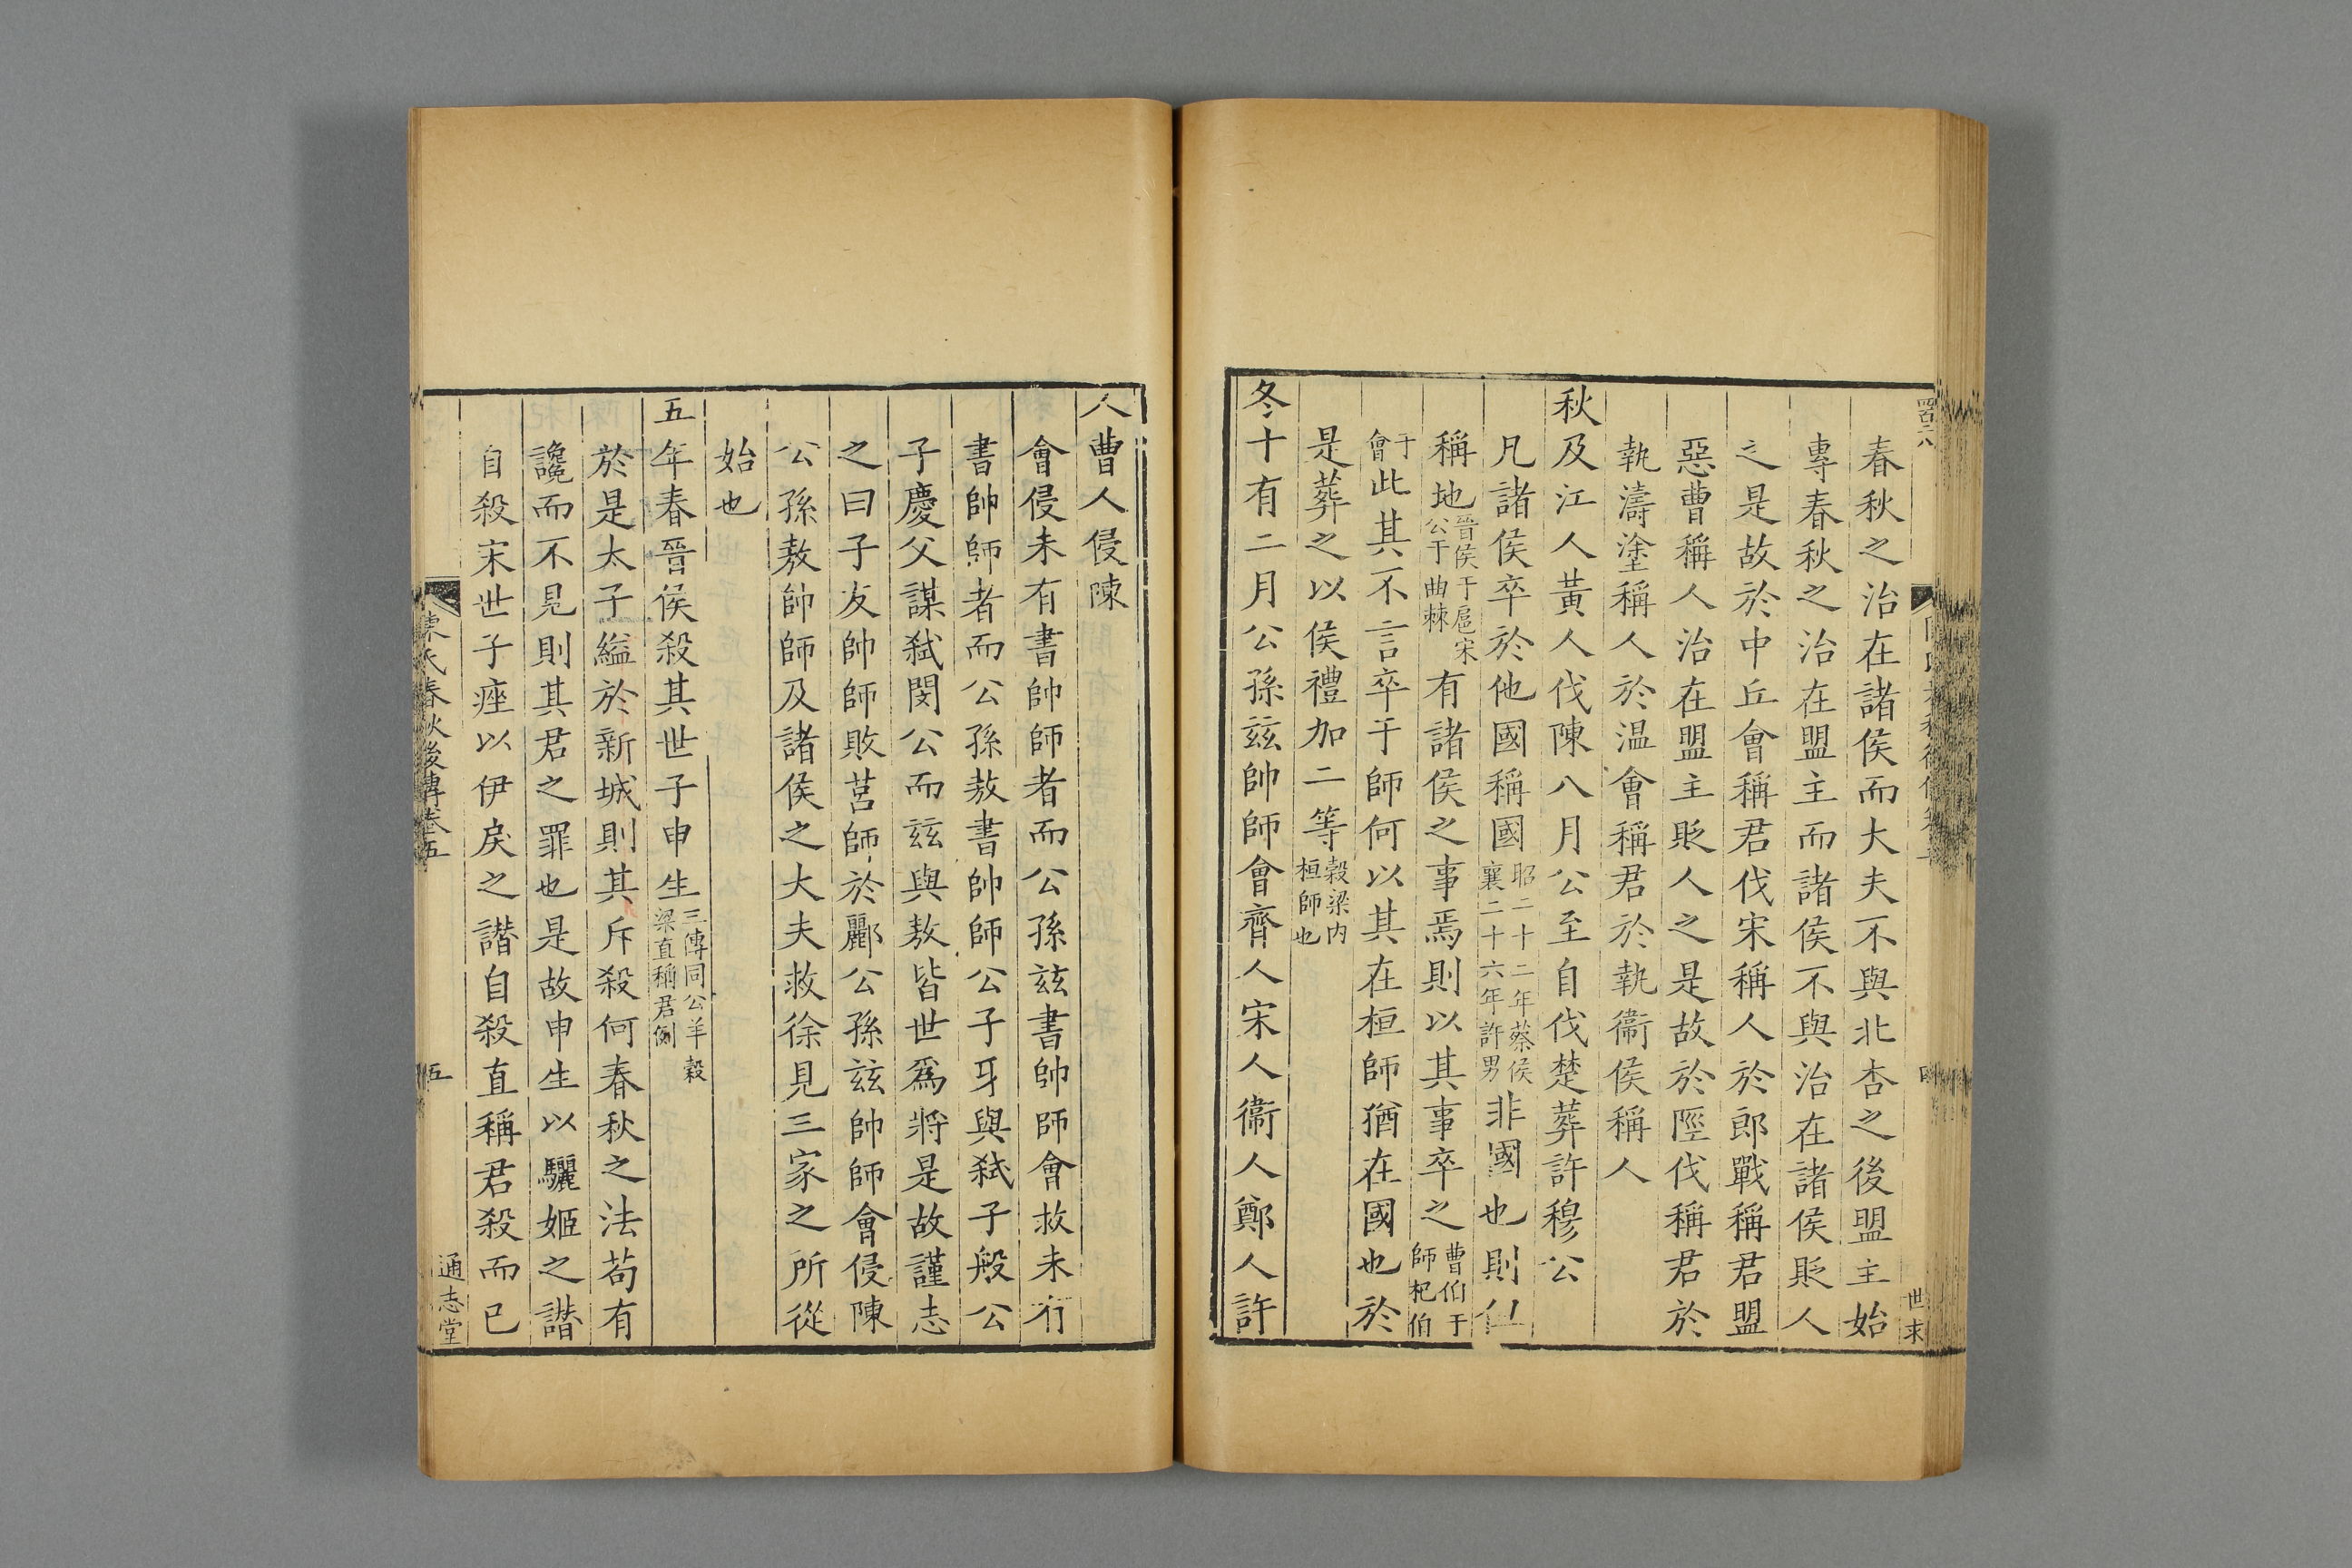 四百二八
世求
春秋之治在諸侯而大夫不與北杏之後盟主始
專春秋之治在盟主而諸侯不與治在諸侯貶人
之是故於中丘會稱君伐宋稱人於郎戰稱君盟
惡曹稱人治在盟主貶人之是故於陘伐稱君於
執濤塗稱人於温會稱君於執衞侯稱人
秋及江人黃人伐陳八月公至自伐楚葬許穆公
凡諸侯卒於他國稱國昭二十二年蔡侯襄二十六年許男非國也則但
稱地晉侯于扈宋公于曲棘有諸侯之事焉則以其事卒之曹伯于師杞伯
于會此其不言卒于師何以其在桓師猶在國也於
是葬之以侯禮加二等穀梁内桓師也
冬十有二月公孫兹帥師會齊人宋人衞人鄭人許
人曹人侵陳
會侵未有書帥師者而公孫兹書帥師會救未有
書帥師者而公孫敖書帥師公子牙與弑子般公
子慶父謀弑閔公而兹與敖皆世爲將是故謹志
之曰子友帥師敗莒師於酈公孫兹帥師會侵陳
公孫敖帥師及諸侯之大夫救徐見三家之所從
始也
五年春晉侯殺其世子申生三傳同公羊穀梁直稱君例
於是太子縊於新城則其斥殺何春秋之法苟有
讒而不見則其君之罪也是故申生以驪姬之譖
自殺宋世子痤以伊戾之譖自殺直稱君殺而已
陳氏春秋後傳卷五
五
通志堂